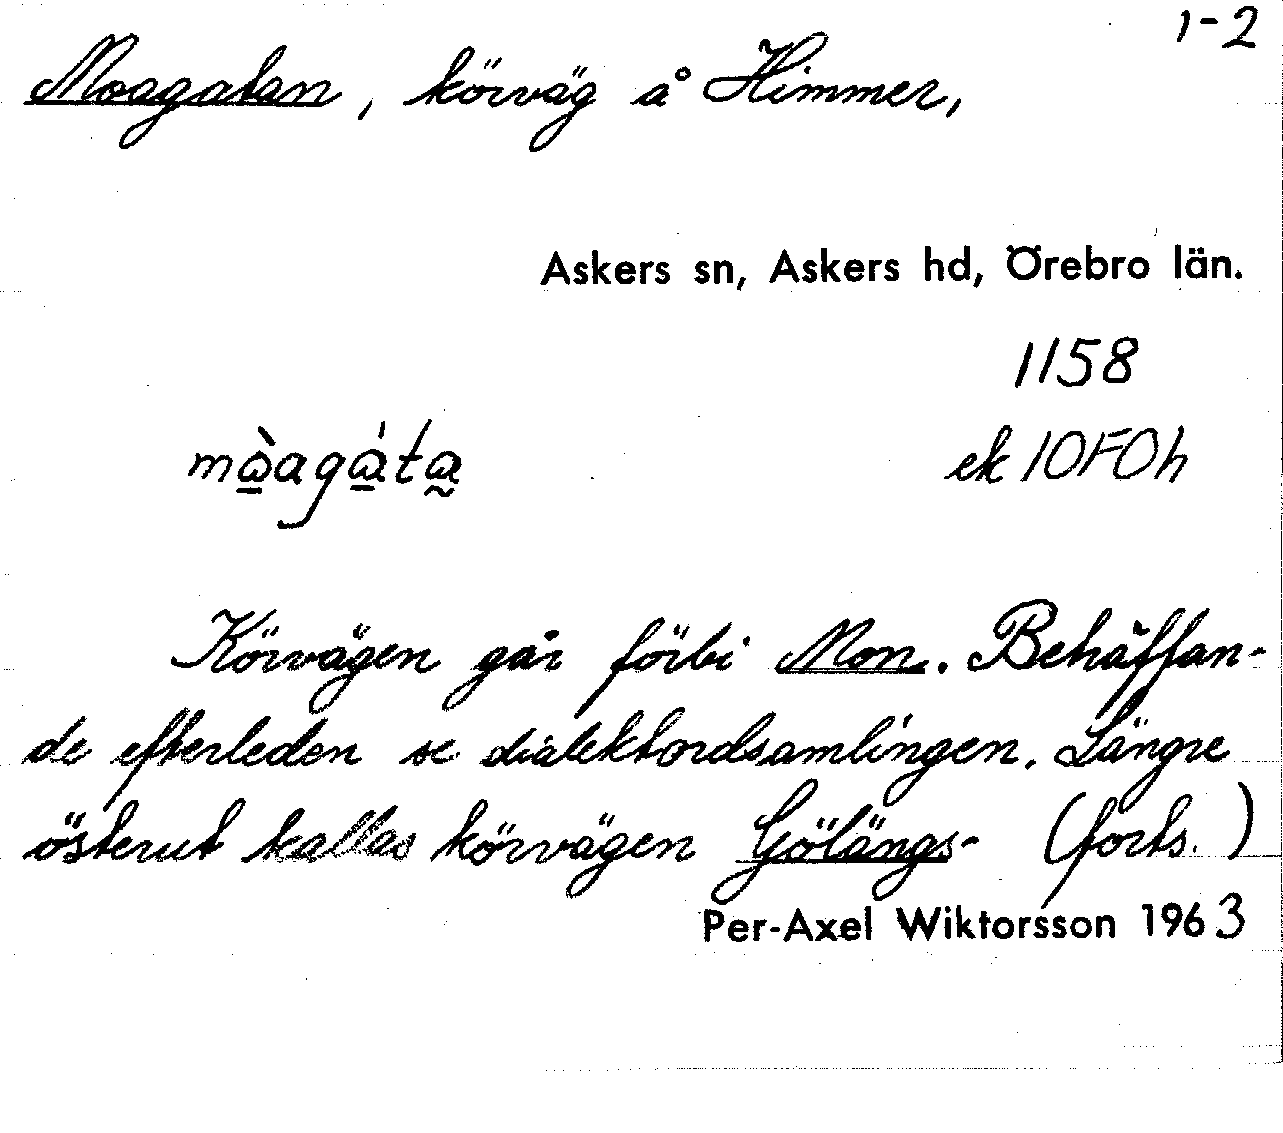 1-2
Moagatan, körväg å Himmer,
Askers sn, Askers hd, Örebro län.
1158
ek 10F0h
Körvägen går förbi Mon. Beträffan-
de efterleden se dialektordsamlingen. Längre
österut kallas körvägen Gölängs- (forts.)
Per-Axel Wiktorsson 1963